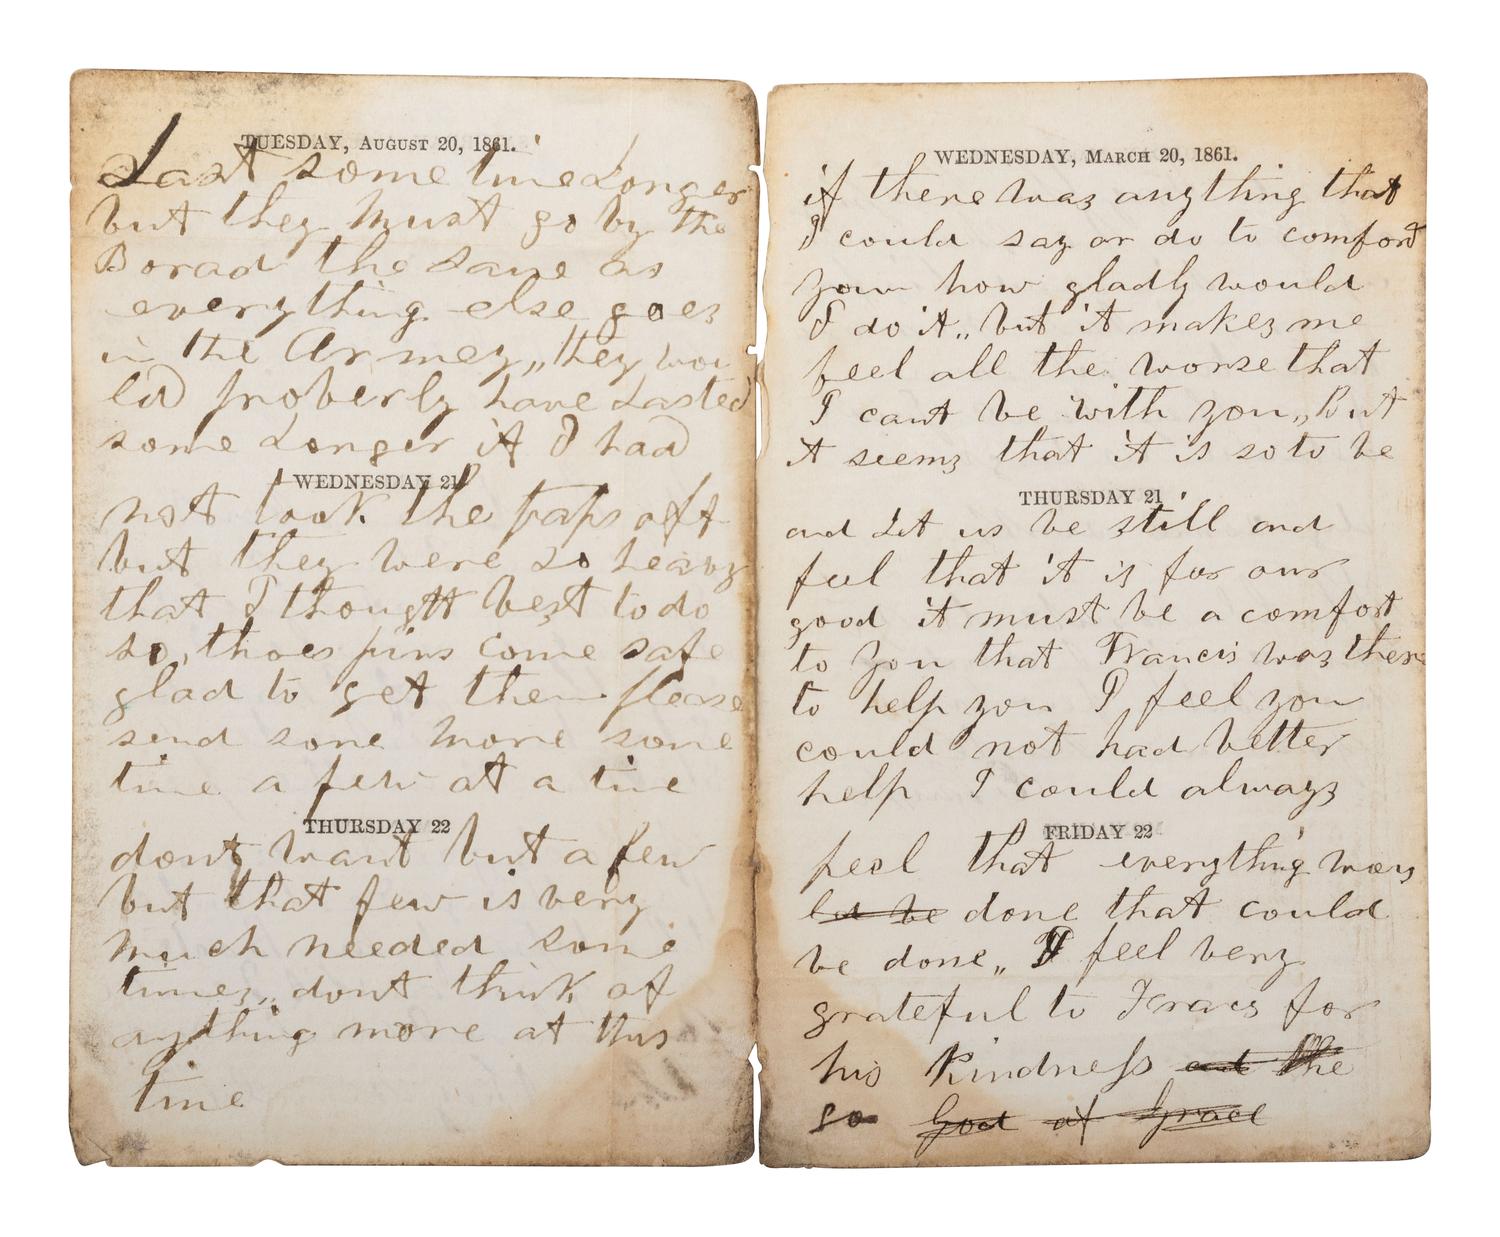 TUESDAY, AUGUST 20, 1861.
Last some time Longer
but they must go by the
Borad the same as
everything else goes
in the Armey,, they wou
ld proberly have Lasted
some Longer if I had
WEDNESDAY 21
not took the taps off
but they were so heavy
that I thought best to do
so, thoes pins come safe
glad to get them please
send some more some
time a few at a time
THURSDAY 22
dont want but a few
but that few is very
much needed some
times,, dont think of
anything more at this
time
WEDNESDAY, MARCH 20, 1861.
if there was anything that
I could say or do to comfort
you how gladly would
I do it,, but it makes me
feel all the worse that
I cant be with you,, But
it seems that it is so to be
THURSDAY 21
and Let us be still and
feel that it is for our
good it must be a comfort
to you that Francis was there
to help you I feel you
could not had better
help I could always
FRIDAY 22
feel that everything was
be done that could
be done,, I feel very
grateful to Francis for
his Kindness and the
so God of Grace